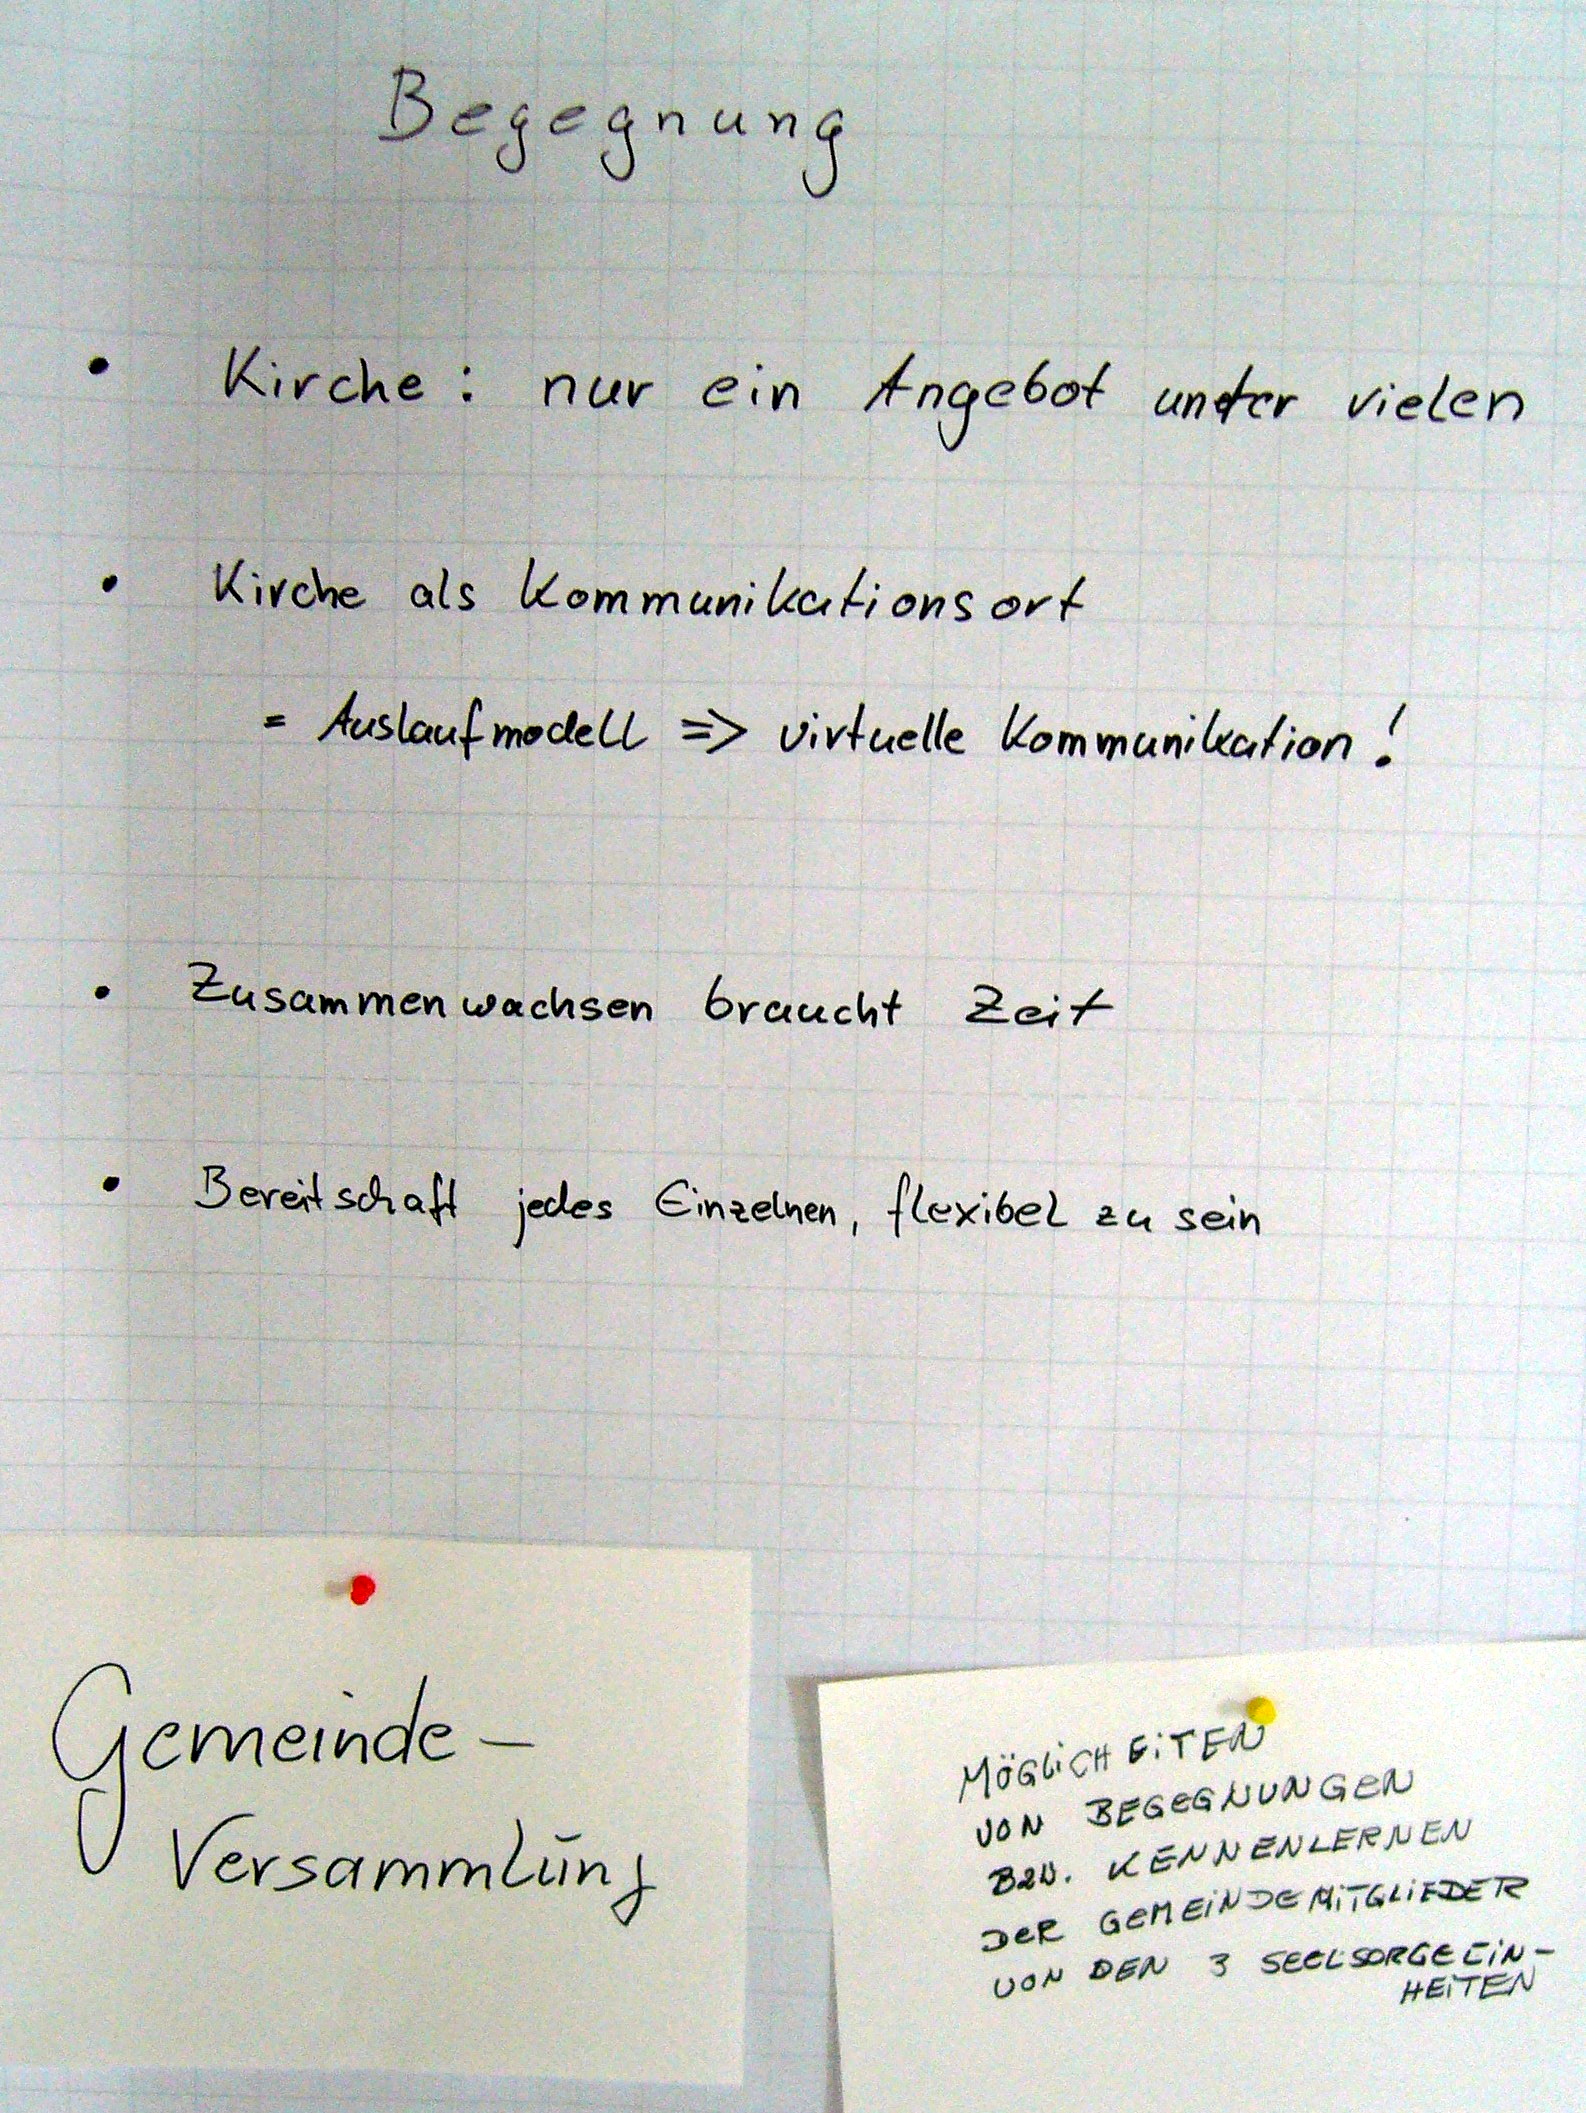 Begegnung
• Kirche: nur ein Angebot unter vielen
• Kirche als Kommunikationsort
= Auslaufmodell => virtuelle Kommunikation!
• Zusammenwachsen braucht Zeit
• Bereitschaft jedes Einzelnen, flexibel zu sein
Gemeinde-
Versammlung
MÖGLICHEITEN
VON BEGEGNUNGEN
BZW. KENNENLERNEN
DER GEMEINDEMITGLIEDER
VON DEN 3 SEELSORGEEIN-
HEITEN